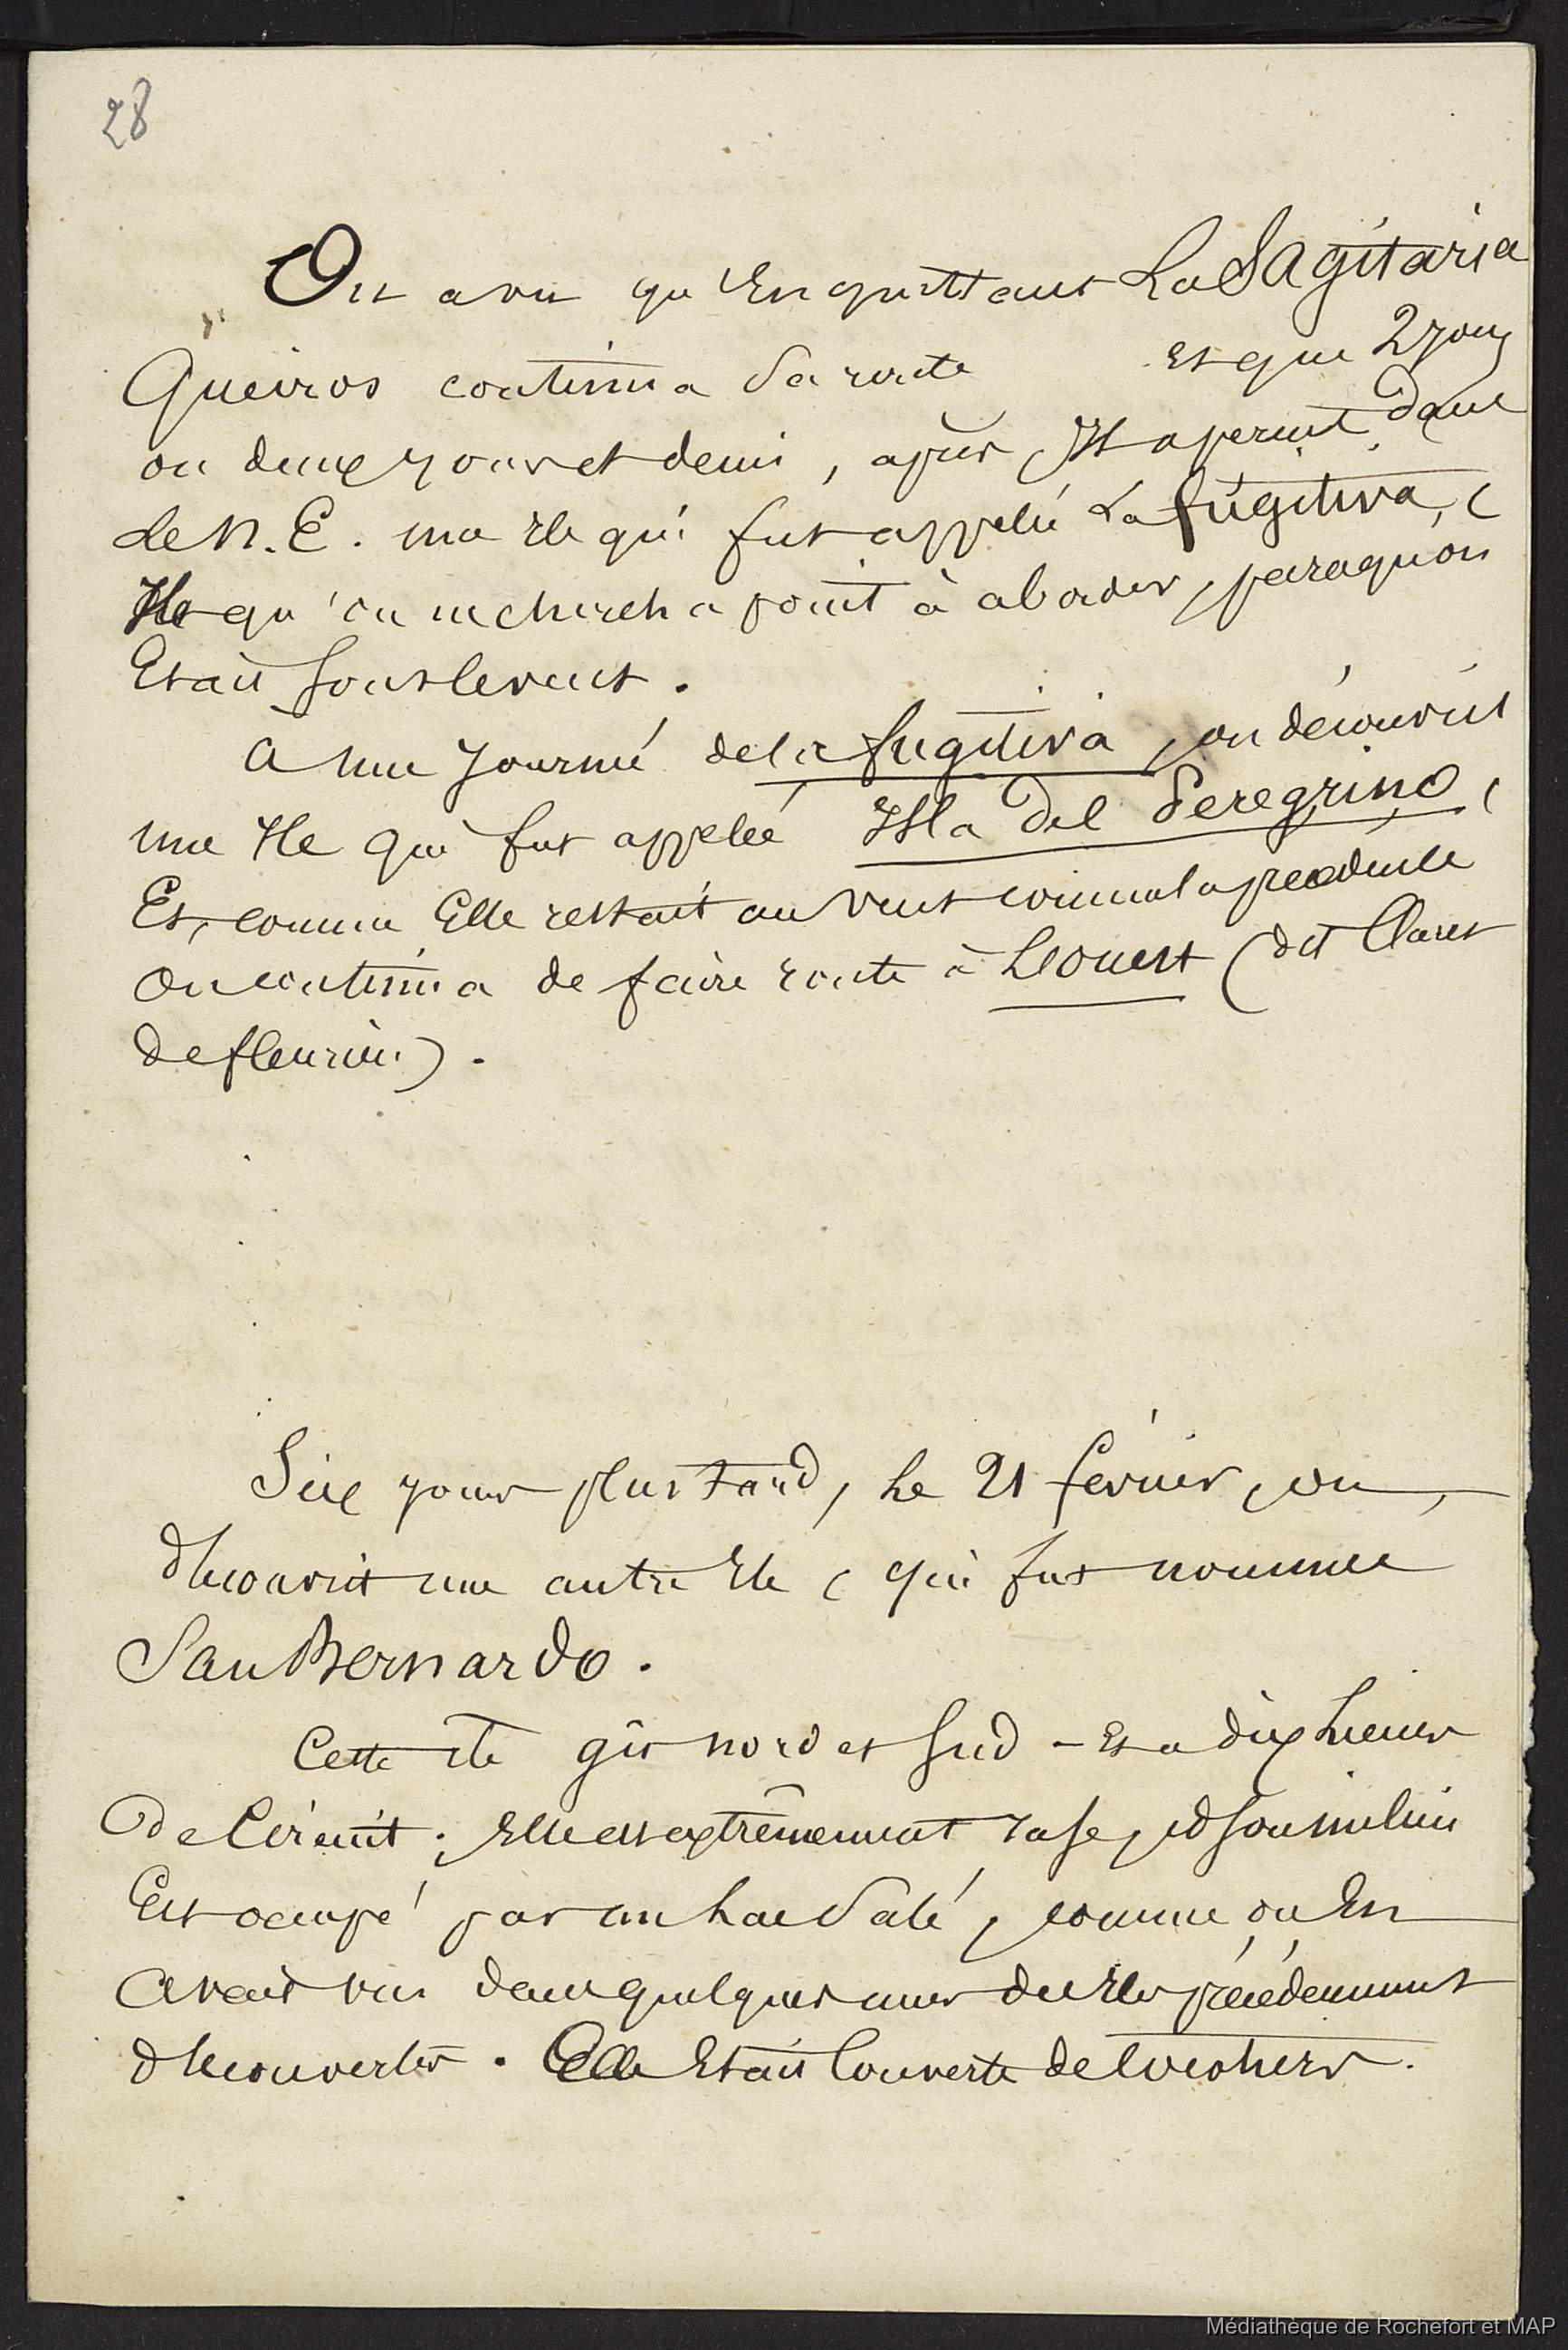 28
On a vu qu'En quittant La Sagitaria
Queiros continua sa route et que 2 jours
ou deux jours et demi, après, Il aperçut dans
le N. E. une Ile qui fut appelée La fugitiva,
Ile qu'on ne chercha point à aborder, parcequ'on
Etait sous le vent.
A une journée de la fugitiva, on découvrit
une Ile qui fut appelée Isla del Peregrino,
Et, comme Elle restait au vent comme la précédente
on continua de faire route à L'Ouest (dit Claret
de fleurieu).
Six jours plus tard, le 21 février, on
découvrit une autre Ile, qui fut nommée
San Bernardo.
Cette île gît nord et sud - Et a dix lieues
De Circuit; Elle est extrêmement rase, et son milieu
Est occupé par un Lac salé, comme on En
avait vu dans quelques unes des Iles précédemment
découvertes. Elle Etait Couverte de Cocotiers.
Médiathèque de Rochefort et MAP